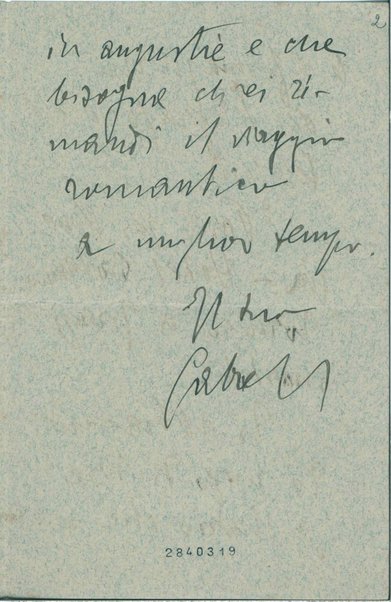 2
in angustie e che
bisogna ch'ei ri-
mandi il viaggio
romantico
a miglior tempo.
Il tuo
Gabriel
2840319